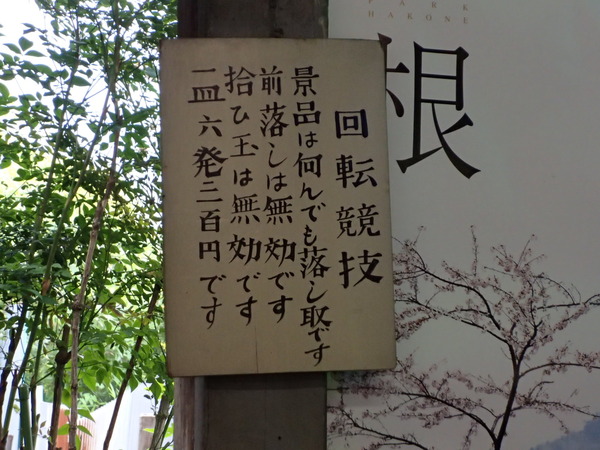 PARK
HAKONE
根
回転競技
景品は何んでも落し取です
前落しは無効です
拾ひ玉は無効です
一皿六発二百円です